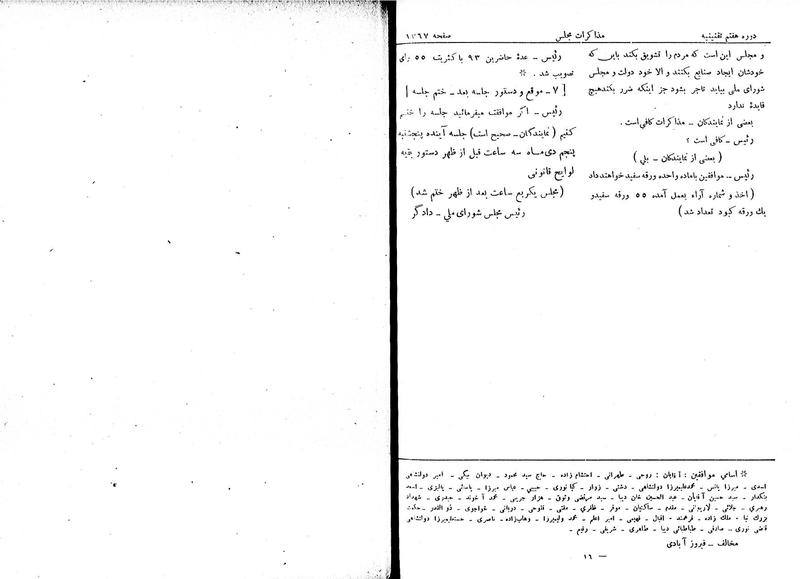 دوره هفتم تقنینیه
مذاکرات مجلس
صفحه ۱۳۶۷
و مجلس این است که مردم را تشویق بکند باین که
خودشان ایجاد صنایع بکنند و الا خود دولت و مجلس
شورای ملی بیاید تاجر بشود جز اینکه ضرر بکند هیچ
فایدهٔ ندارد
بعضی از نمایندگان ـ مذاکرات کافی است .
رئیس ـ کافی است ؟
( بعضی از نمایندگان ـ بلی )
رئیس ـ موافقین با ماده واحده ورقه سفید خواهند داد
( اخذ و شماره آراء بعمل آمده ۵۵ ورقه سفید و
یك ورقه کبود تعداد شد )
رئیس ـ عدهٔ حاضرین ۹۳ با کثریت ۵۵ رای
تصویب شد . *
[ ۷ ـ موقع و دستور جلسه بعد ـ ختم جلسه ]
رئیس ـ اگر موافقت میفرمائید جلسه را ختم
کنیم ( نمایندگان ـ صحیح است ) جلسه آینده پنجشنبه
پنجم دی ماه سه ساعت قبل از ظهر دستور بقیه
لوایح قانونی
( مجلس یکربع ساعت بعد از ظهر ختم شد )
رئیس مجلس شورای ملی ـ دادگر
* اسامی موافقین : آقایان : روحی ـ طهرانی ـ احتشام زاده ـ حاج سید محمود ـ دیوان بیگی ـ امیر دولتشاهی
اسدی ـ میرزا یانس ـ محمدعلیمیرزا دولتشاهی ـ دشتی ـ زوار ـ کیا نوری ـ حبیبی ـ عباس میرزا ـ یاسائی ـ پالیزی ـ اسعد
بنکدار ـ سید حسین آقایان ـ عبد الحسین خان دیبا ـ سید مرتضی وثوق ـ هزار جریبی ـ محمد آخوند ـ حیدری ـ شهداد
رهبری ـ جلائی ـ لاریجانی ـ مقدم ـ ساکنیان ـ موقر ـ ظفری ـ ملتی ـ فتوحی ـ دربانی ـ خواجوی ـ ذوالقدر ـ حکمت
بزرك نیا ـ ملك زاده ـ فرهمند ـ اقبال ـ فهیمی ـ امیر اعلم ـ محمد ولیمیرزا ـ وهاب زاده ـ ناصری ـ حشمتعلیمیرزا دولتشاهی
قاضی نوری ـ صادقی ـ طباطبائی دیبا ـ طاهری ـ شریفی ـ رفیع .
مخالف ـ فیروز آبادی
ـ ۱۶